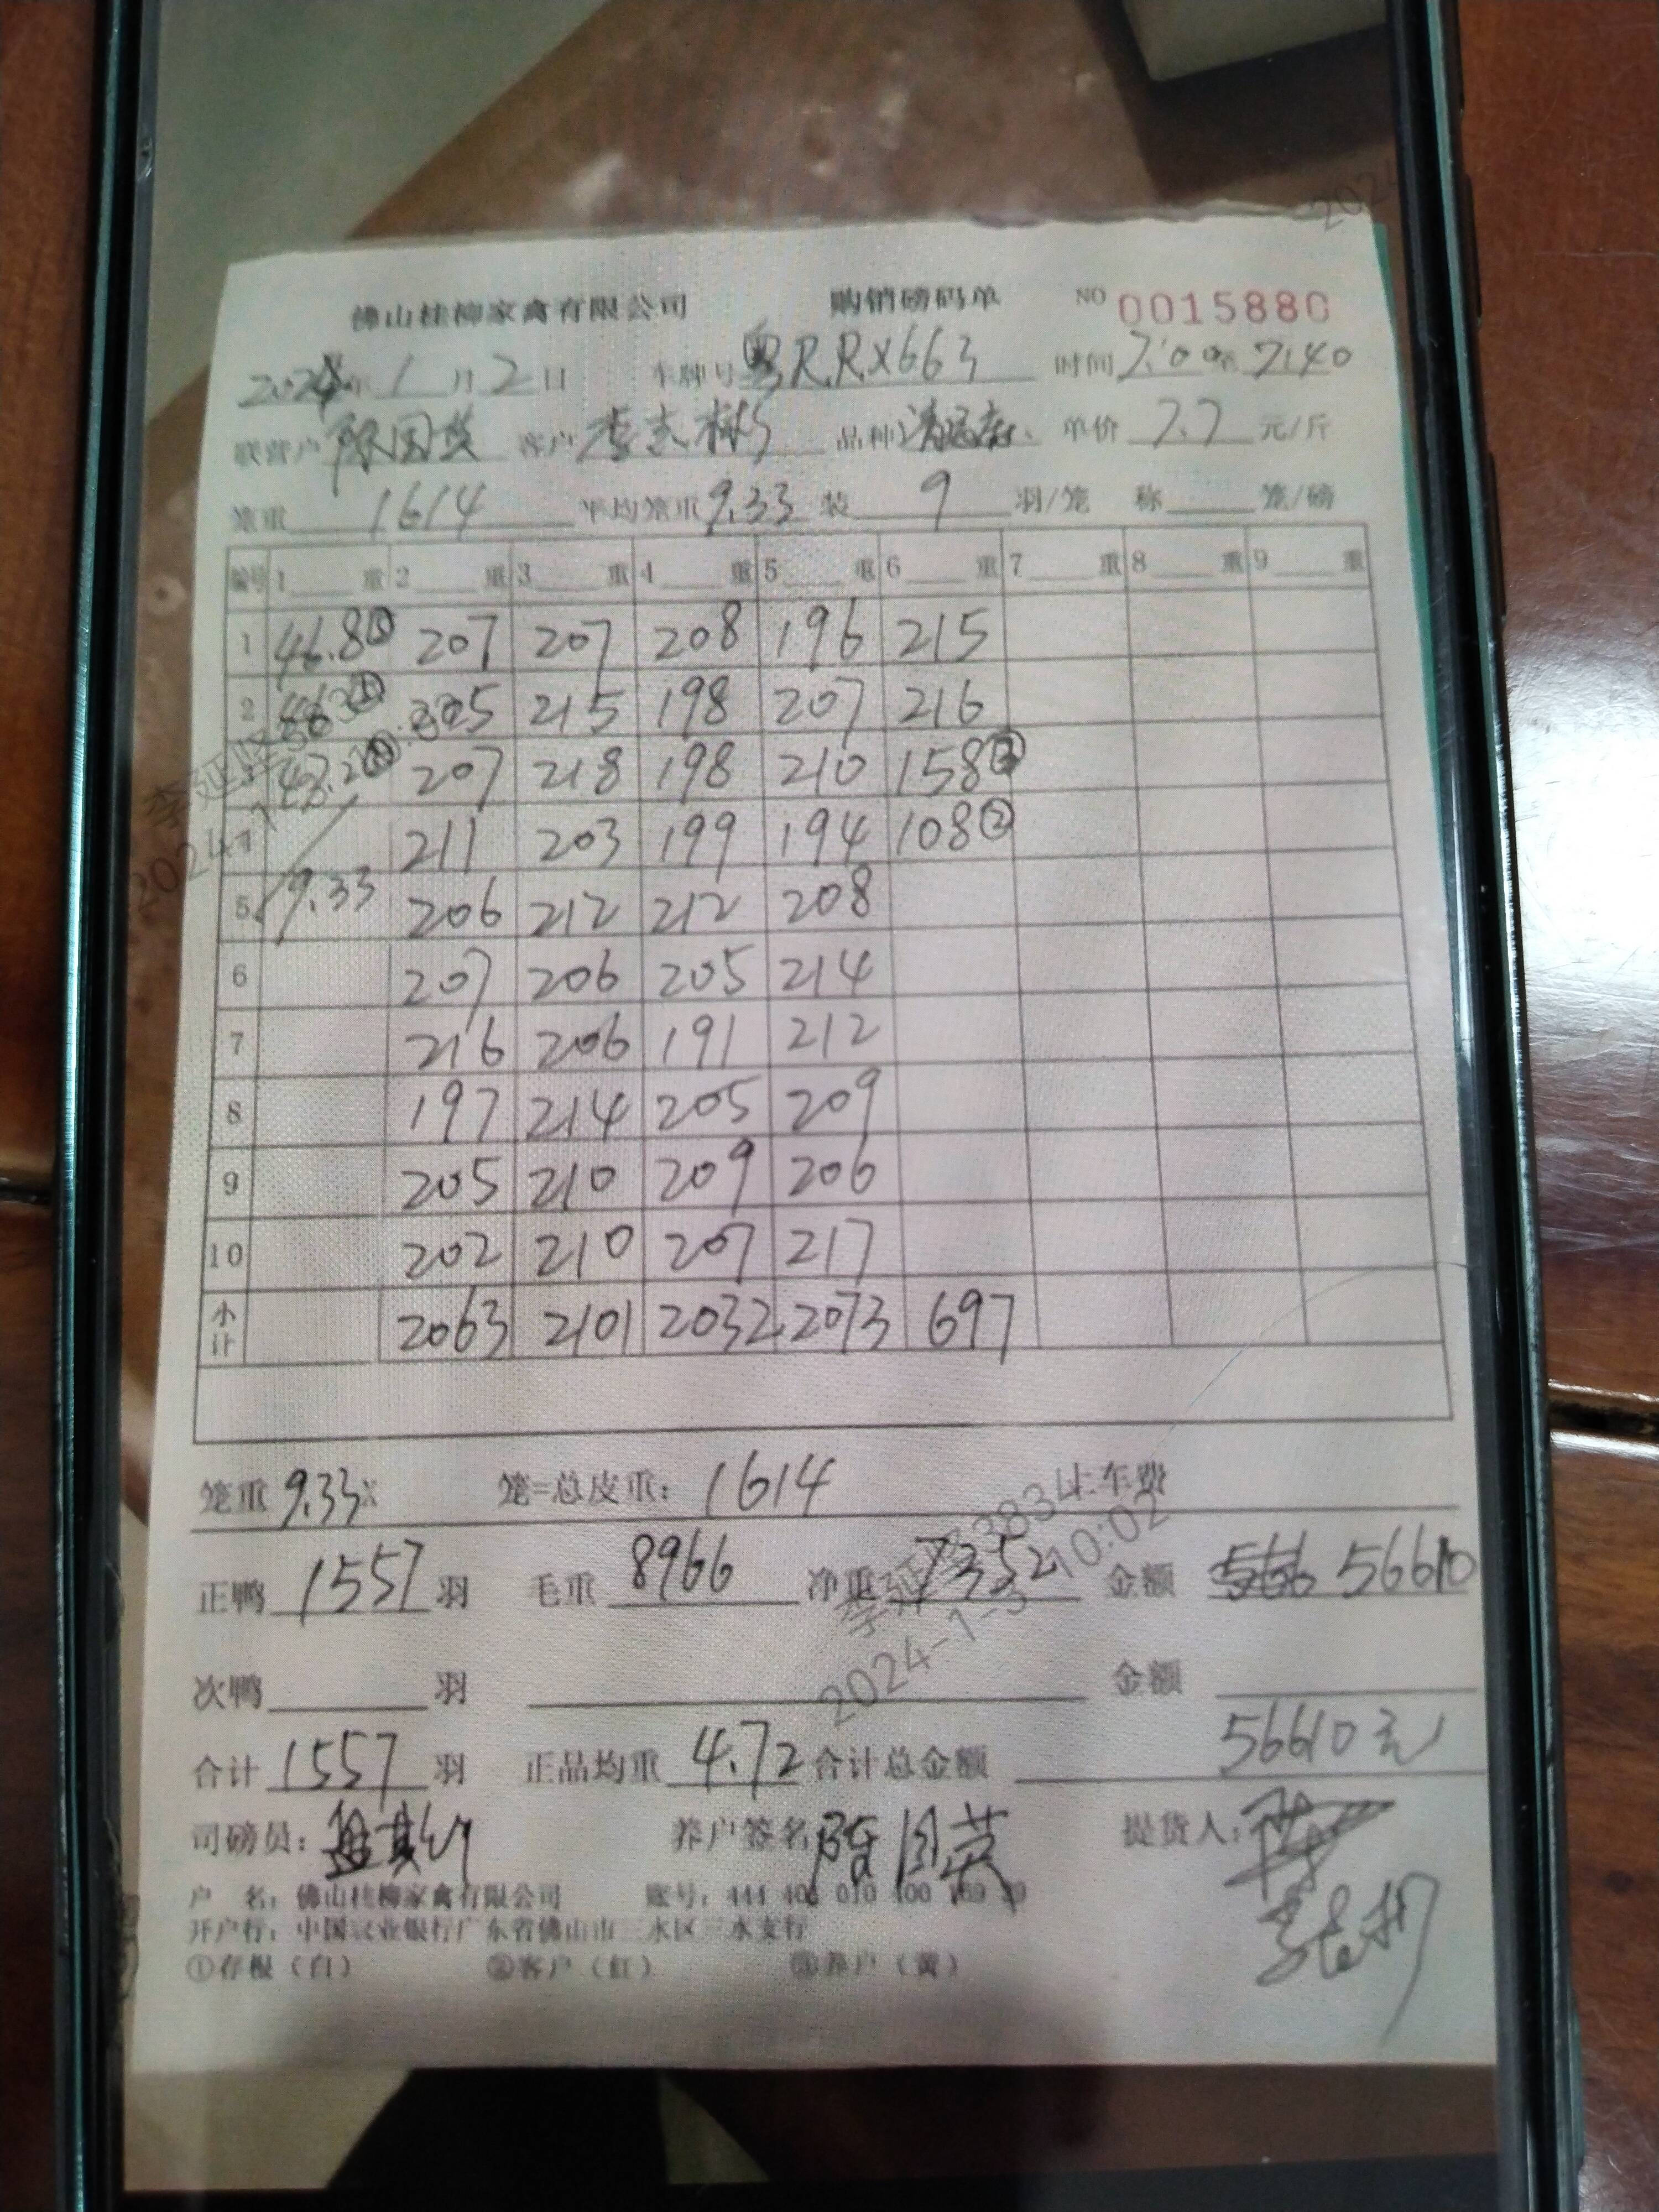 佛山桂柳家禽有限公司 购销磅码单 NO 0015880
2024年 1月 2日 车牌号 粤RRX663 时间 7:00至7:40
联营户 陈国英 客户 品种 单价 7.7 元/斤
笼重 1614 平均笼重 9.33 装 9 羽/笼 称 笼/磅
编号 1 重 2 重 3 重 4 重 5 重 6 重 7 重 8 重 9 重
1 46.8⑤ 207 207 208 196 215
2 205 215 198 207 216
3 207 218 198 210 158③
4 211 203 199 194 108②
5 9.33 206 212 212 208
6 207 206 205 214
7 216 206 191 212
8 197 214 205 209
9 205 210 209 206
10 202 210 207 217
小计 2063 2101 2032 2073 697
笼重 9.33× 笼=总皮重: 1614 上车费
正鸭 1557 羽 毛重 8966 净重 7352 金额 566 56610
次鸭 羽 金额
合计 1557 羽 正品均重 4.72 合计总金额 56610元
司磅员: 养户签名 陈国英 提货人:
户 名: 佛山桂柳家禽有限公司 账号:
开户行: 中国农业银行广东省佛山市三水区三水支行
①存根(白) ②客户(红) ③养户(黄)
李延坚3834
2024-1-3 10:02